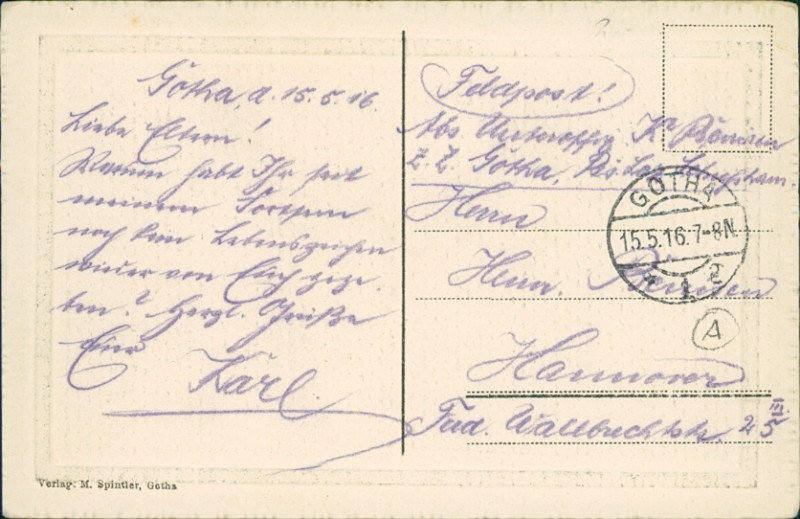 Gotha, d. 15.5.16.
Liebe Eltern!
Warum habt Ihr seit
meinem Fortsein
noch kein Lebenszeichen
wieder von Euch gege-
ben? Herzl. Grüße
Euer
Karl.
Verlag: M. Spintler, Gotha
Feldpost!
Abs. Unteroffz. K.
Z. Z. Gotha,
Herrn
Heinr.
Hannover
Ferd. Wallbrechtstr. 25 III.
GOTHA
15.5.16.7-8N.
* 1 2
A